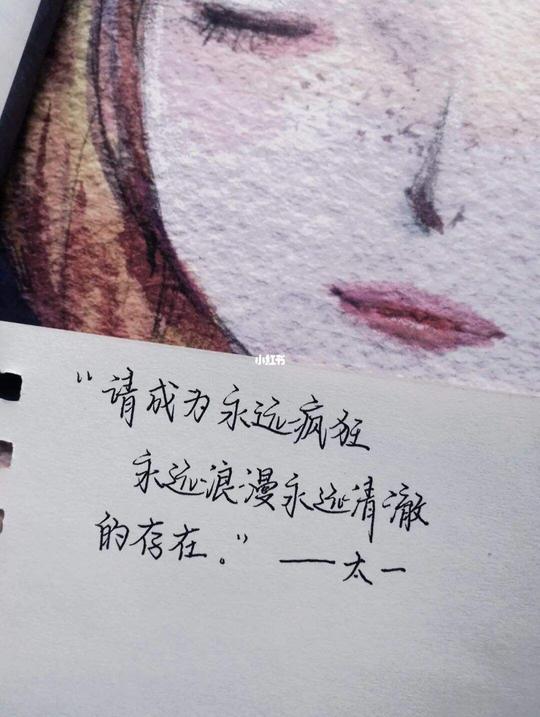 小红书
“请成为永远疯狂
永远浪漫永远清澈
的存在。” ——太一